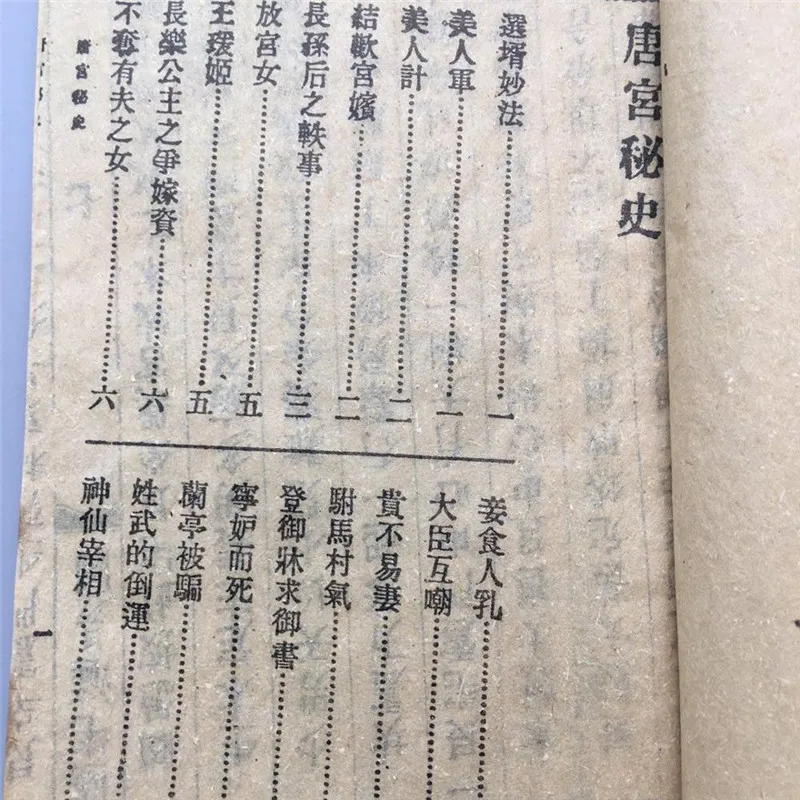 唐宮秘史
選壻妙法………一
美人軍………一
美人計………二
結歡宮嬪………二
長孫后之軼事………三
放宮女………五
王瑗姬………五
長樂公主之爭嫁資………六
不奪有夫之女………六
妾食人乳………
大臣互嘲………
貴不易妻………
駙馬村氣………
登御牀求御書………
寧妒而死………
蘭亭被騙………
姓武的倒運………
神仙宰相………
唐宮秘史
一